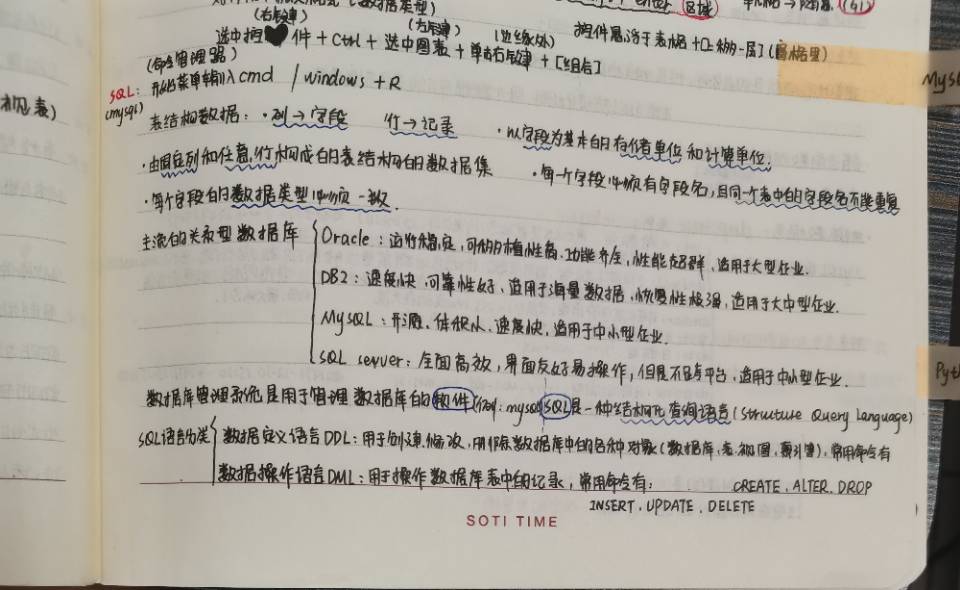 (数据类型) 区域
(右后键) (左后键) (边缘外) 控件悬浮于表格
选中控件 + Ctrl + 选中图表 + 单击右后键 + [组合]
(命令管理器)
SQL: 开始菜单输入 cmd / windows + R
(mysql)
初见表)
表结构数据: ·列→字段 行→记录 ·以字段为基本的存储单位和计算单位.
·由固定列和任意行构成的表结构的数据集 ·每个字段必须有字段名,且同一个表中的字段名不能重复
·每个字段的数据类型必须一致.
主流的关系型数据库
Oracle: 运行稳定,可移植性高,功能齐全,性能超群,适用于大型企业.
DB2: 速度快,可靠性好,适用于海量数据,恢复性极强,适用于大中型企业.
MySQL: 开源,体积小,速度快,适用于中小型企业.
SQL server: 全面高效,界面友好易操作,但是不跨平台,适用于中小型企业.
数据库管理系统是用于管理数据库的软件(例: mysql) SQL是一种结构化查询语言(Structure Query Language)
SQL语言分类
数据定义语言DDL: 用于创建,修改,删除数据库中的各种对象(数据库,表,视图,索引等),常用命令有
CREATE, ALTER, DROP
数据操作语言DML: 用于操作数据库表中的记录,常用命令有:
INSERT, UPDATE, DELETE
SOTI TIME
MySQ
Pyth